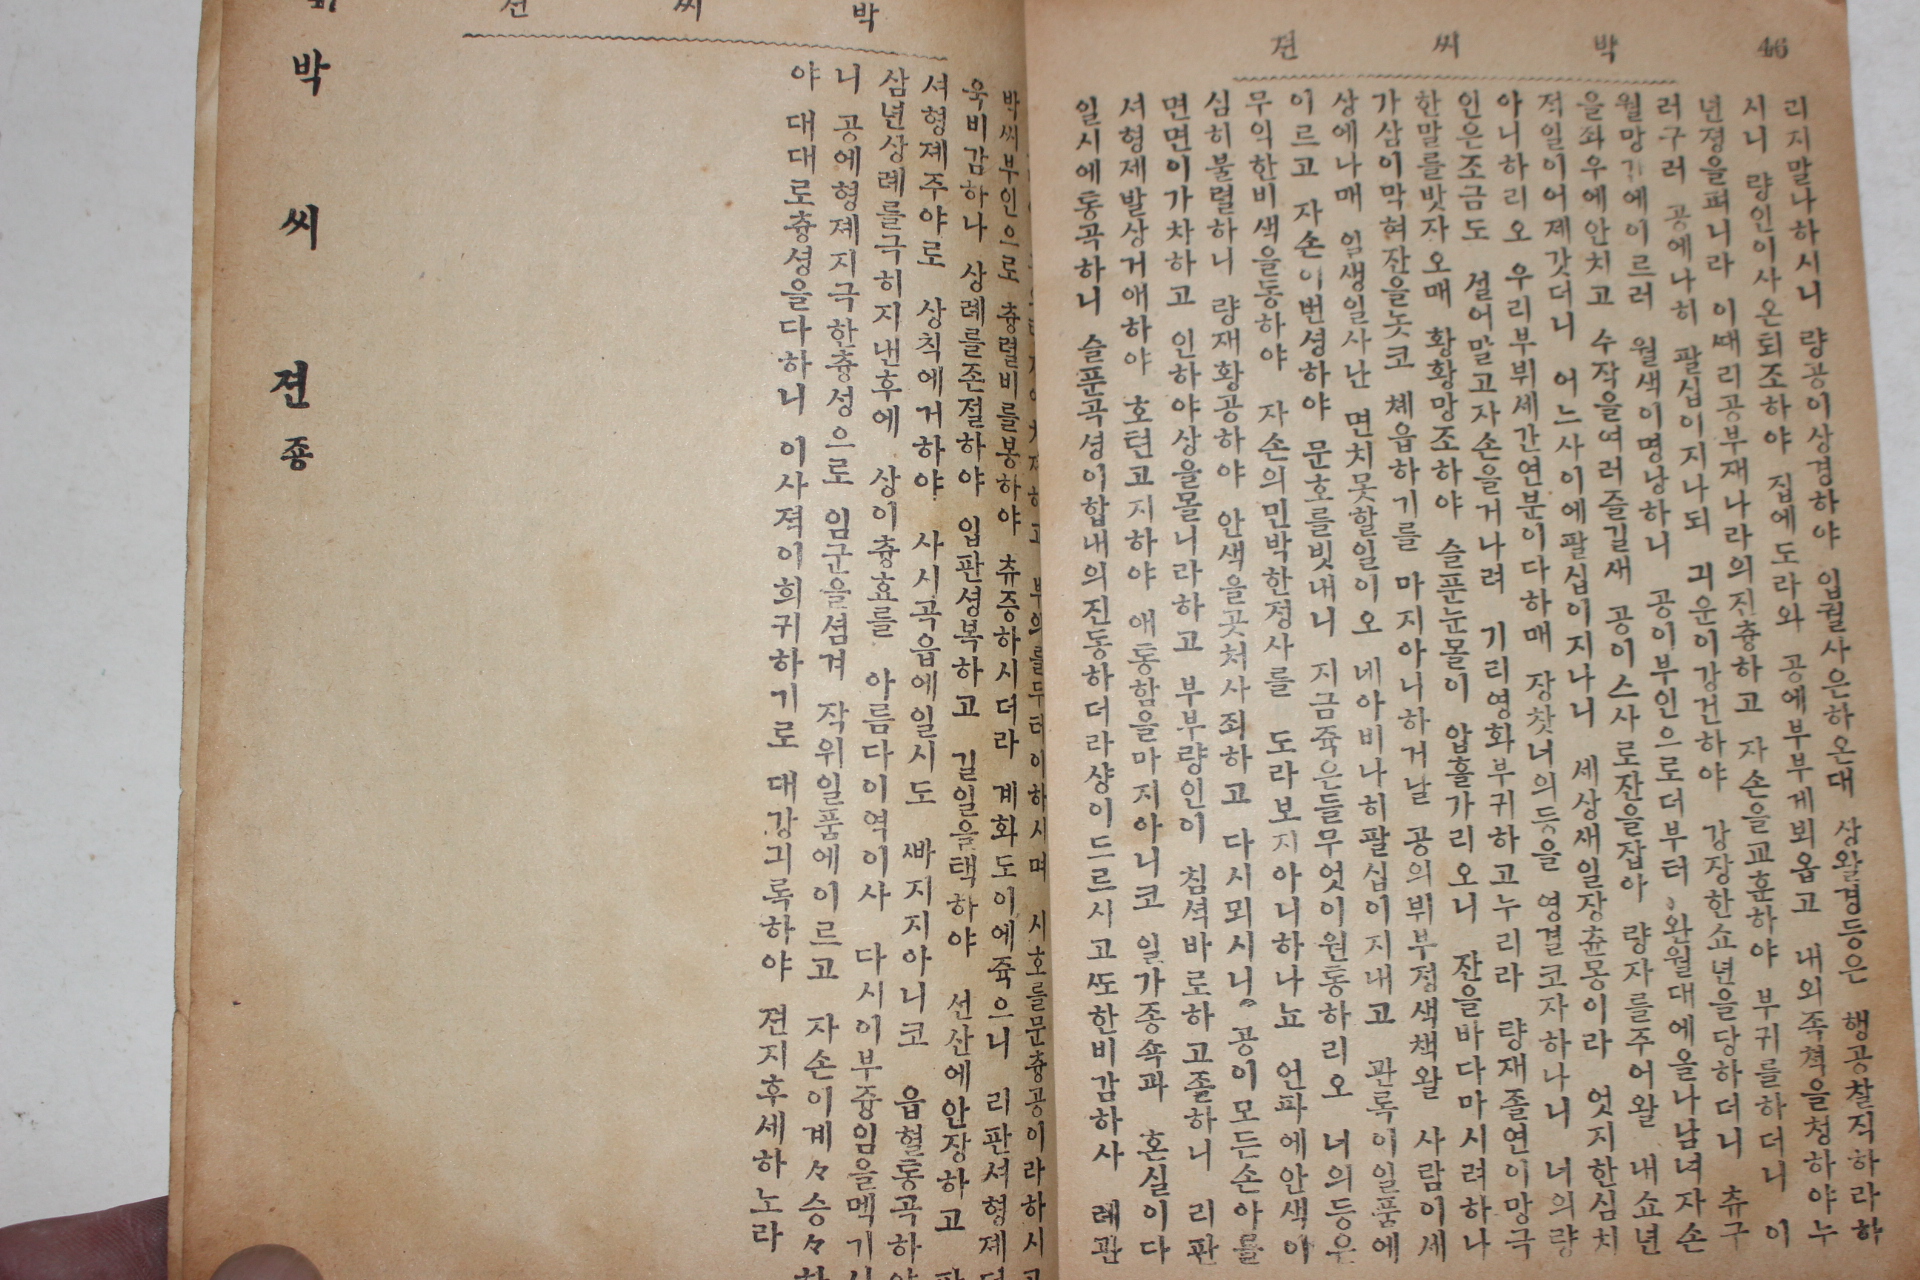 46 박 씨 젼
리지말나하시니 량공이상경하야 입궐사은하온대 상왈경등은 행공찰직하라하
시니 량인이사은퇴조하야 집에도라와 공에부부게뵈옵고 내외족쳑을청하야누
년졍을펴니라 이때리공부재나라의진츙하고 자손을교훈하야 부귀를하더니 이
러구러 공에나히 팔십이지나되 긔운이강건하야 강장한쇼년을당하더니 츄구
월망간에이르러 월색이명낭하니 공이부인으로더부터 완월대에올나남녀자손
을좌우에안치고 수작을여러즐길새 공이스사로잔을잡아 량자를주어왈 내쇼년
적일이어졔갓더니 어느사이에팔십이지나니 세상새일장츈몽이라 엇지한심치
아니하리오 우리부뷔세간연분이다하매 장찻너의등을 영결코자하나니 너의량
인은조금도 설어말고자손을거나려 기리영화부귀하고누리라 량재졸연이망극
한말를밧자오매 황황망조하야 슬푼눈물이 압흘가리오니 잔을바다마시려하나
가삼이막혀잔을놋코 쳬읍하기를 마지아니하거날 공의뷔부정색책왈 사람이세
상에나매 일생일사난 면치못할일이오 네아비나히팔십이지내고 관록이일품에
이르고 자손이번셩하야 문호를빗내니 지금쥭은들무엇이원통하리오 너의등은
무익한비색을동하야 자손의민박한정사를 도라보지아니하나뇨 언파에안색이
심히불렬하니 량재황공하야 안색을곳쳐사죄하고 다시뫼시니 공이모든손아를
면면이가차하고 인하야상을물니라하고 부부량인이 침셕바로하고졸하니 리판
셔형제발상거애하야 호텬고지하야 애통함을마지아니코 일가종쇽과 혼실이다
일시에통곡하니 슬푼곡셩이합내의진동하더라샹이드르시고또한비감하사 례관
박 씨 젼
박씨부인으로 츙렬비를봉하야 츄증하시더라 계화도이에쥭으니 리판셔형졔
욱비감하나 상례를존졀하야 입판셩복하고 길일을택하야 선산에안장하고
셔형졔주야로 상칙에거하야 사시곡읍에일시도 빠지지아니코 읍혈통곡하
삼년상례를극히지낸후에 상이츙효를 아름다이역이사 다시이부즁임을멕기
니 공에형졔지극한츙셩으로 임군을셤겨 작위일품에이르고 자손이계々승々
야 대대로츙셩을다하니 이사젹이희귀하기로 대강긔록하야 젼지후세하노라
박 씨 젼 죵